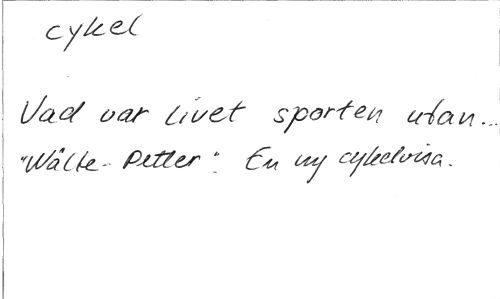 cykel
Vad var livet sporten utan...
"Wälte-Petter". En ny cykelvisa.